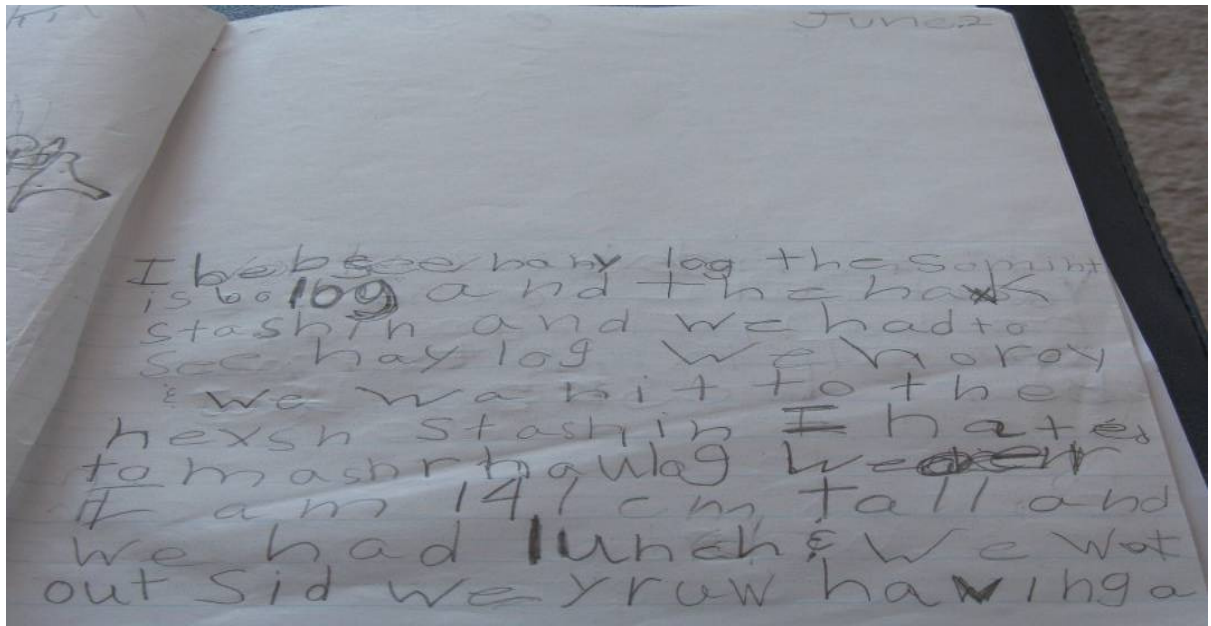 June 2
I see how log the
is log and the hawk
stashin and we had to
see hay log we horoy
& we wanit to the
hexsh stashin I hated
to mashr haw log we
I am 141 cm tall and
we had lunch & we wot
out sid we yruw having a